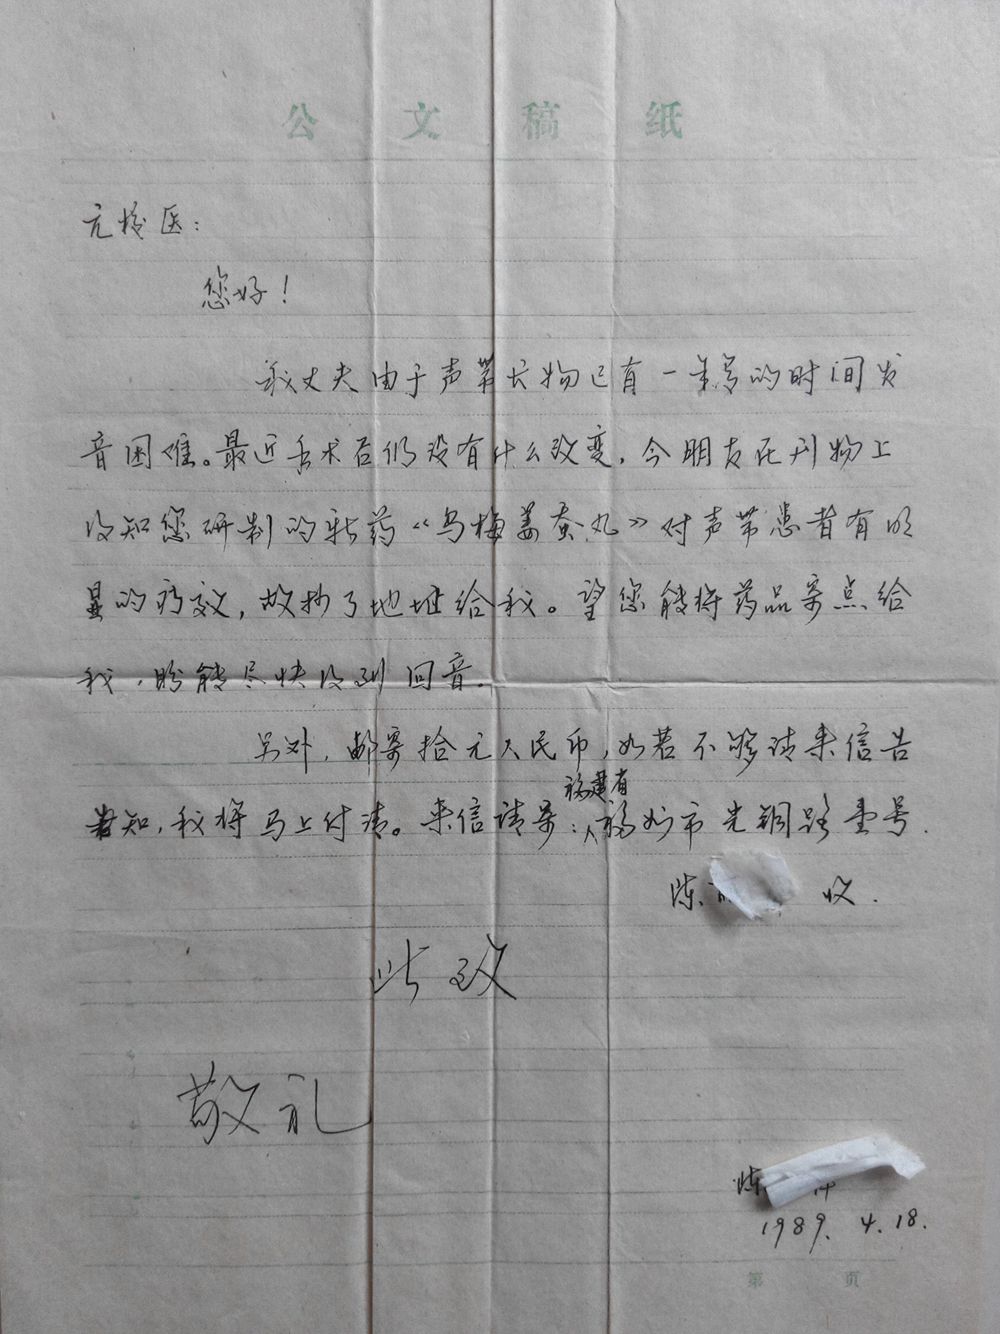 公文稿纸
亢校医：
您好！
我丈夫由于声带长物已有一年多的时间发
音困难。最近手术后仍没有什么改变，今朋友在刊物上
没知您研制的新药《乌梅姜蚕丸》对声带患者有明
显的疗效，故抄了地址给我。望您能将药品寄点给
我，盼能尽快没到回音。
另外，邮寄拾元人民币，如若不够请来信告
知，我将马上付清。来信请寄：福建省福州市光铜路壹号.
陈 收.
此致
敬礼
陈
1989. 4. 18.
第 页